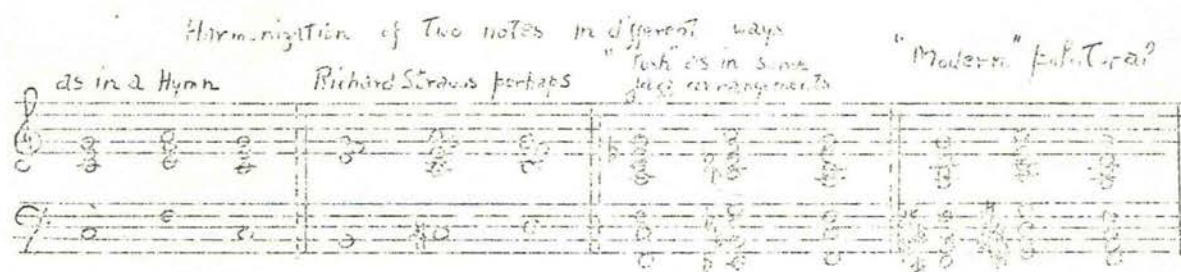 Harmonization of Two notes in different ways
as in a Hymn
Richard Strauss perhaps
"Lush" as in some
jazz arrangements
"Modern"